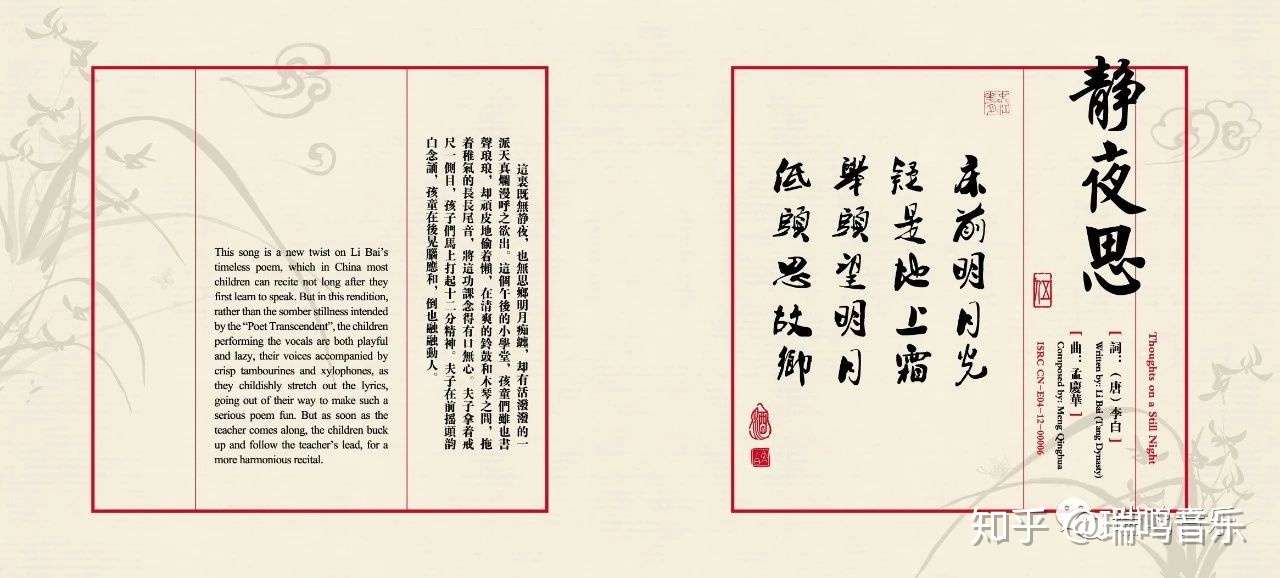 This song is a new twist on Li Bai's
timeless poem, which in China most
children can recite not long after they
first learn to speak. But in this rendition,
rather than the somber stillness intended
by the “Poet Transcendent”, the children
performing the vocals are both playful
and lazy, their voices accompanied by
crisp tambourines and xylophones, as
they childishly stretch out the lyrics,
going out of their way to make such a
serious poem fun. But as soon as the
teacher comes along, the children buck
up and follow the teacher's lead, for a
more harmonious recital.
這裏既無静夜，也無思鄉明月痴纏，却有活潑潑的一
派天真爛漫呼之欲出。這個午後的小學堂，孩童們雖也書
聲琅琅，却頑皮地偷着懶，在清爽的鈴鼓和木琴之間，拖
着稚氣的長長尾音，將這功課念得有口無心。夫子拿着戒
尺一側目，孩子們馬上打起十二分精神。夫子在前摇頭韵
白念誦，孩童在後晃腦應和，倒也融融動人。
静夜思
Thoughts on a Still Night
[ 詞：（唐）李白 ]
Written by: Li Bai (Tang Dynasty)
[ 曲：孟慶華 ]
Composed by: Meng Qinghua
ISRC CN-E04-12-00006
床前明月光
疑是地上霜
舉頭望明月
低頭思故鄉
知乎 @瑞鸣音乐